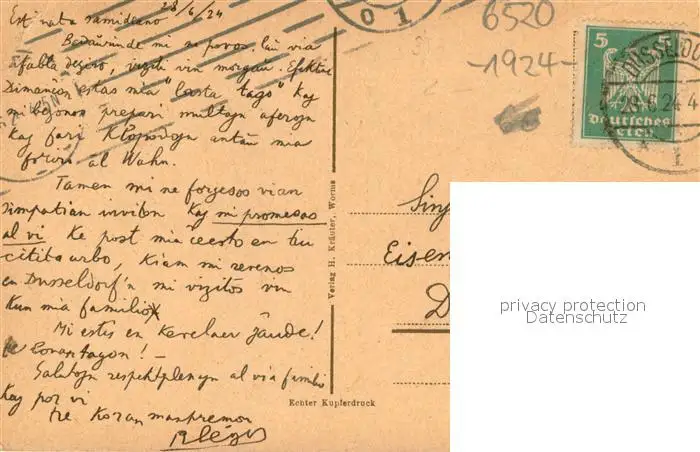 28/6/24
Est nata samideano
Bedaŭrinde mi ne povos, laŭ via
afabla deziro, viziti vin morgaŭ. Efektive
Dimanĉon estas mia "lasta tago" kaj
mi bezonos prepari multajn aferojn
kaj fari Klopodojn antaŭ mia
al Wahn.
Tamen mi ne forgesos vian
simpatian inviton kaj mi promesas
al vi ke post mia ĉeesto en tiu
citita urbo, kiam mi revenos
en Dusseldorf'n mi vizitos vin
kun mia familio
Mi estis en Kevelaer ĵaŭde!
Salutojn respektplenajn al via familio
kaj por vi
tre koran manpremon
Verlag H. Kräuter, Worms
Echter Kupferdruck
0 1
6520
-1924-
5 5
Deutsches
Reich
DÜSSELDO
28.6.24.4
Sinj
Eisen
D
privacy protection
Datenschutz